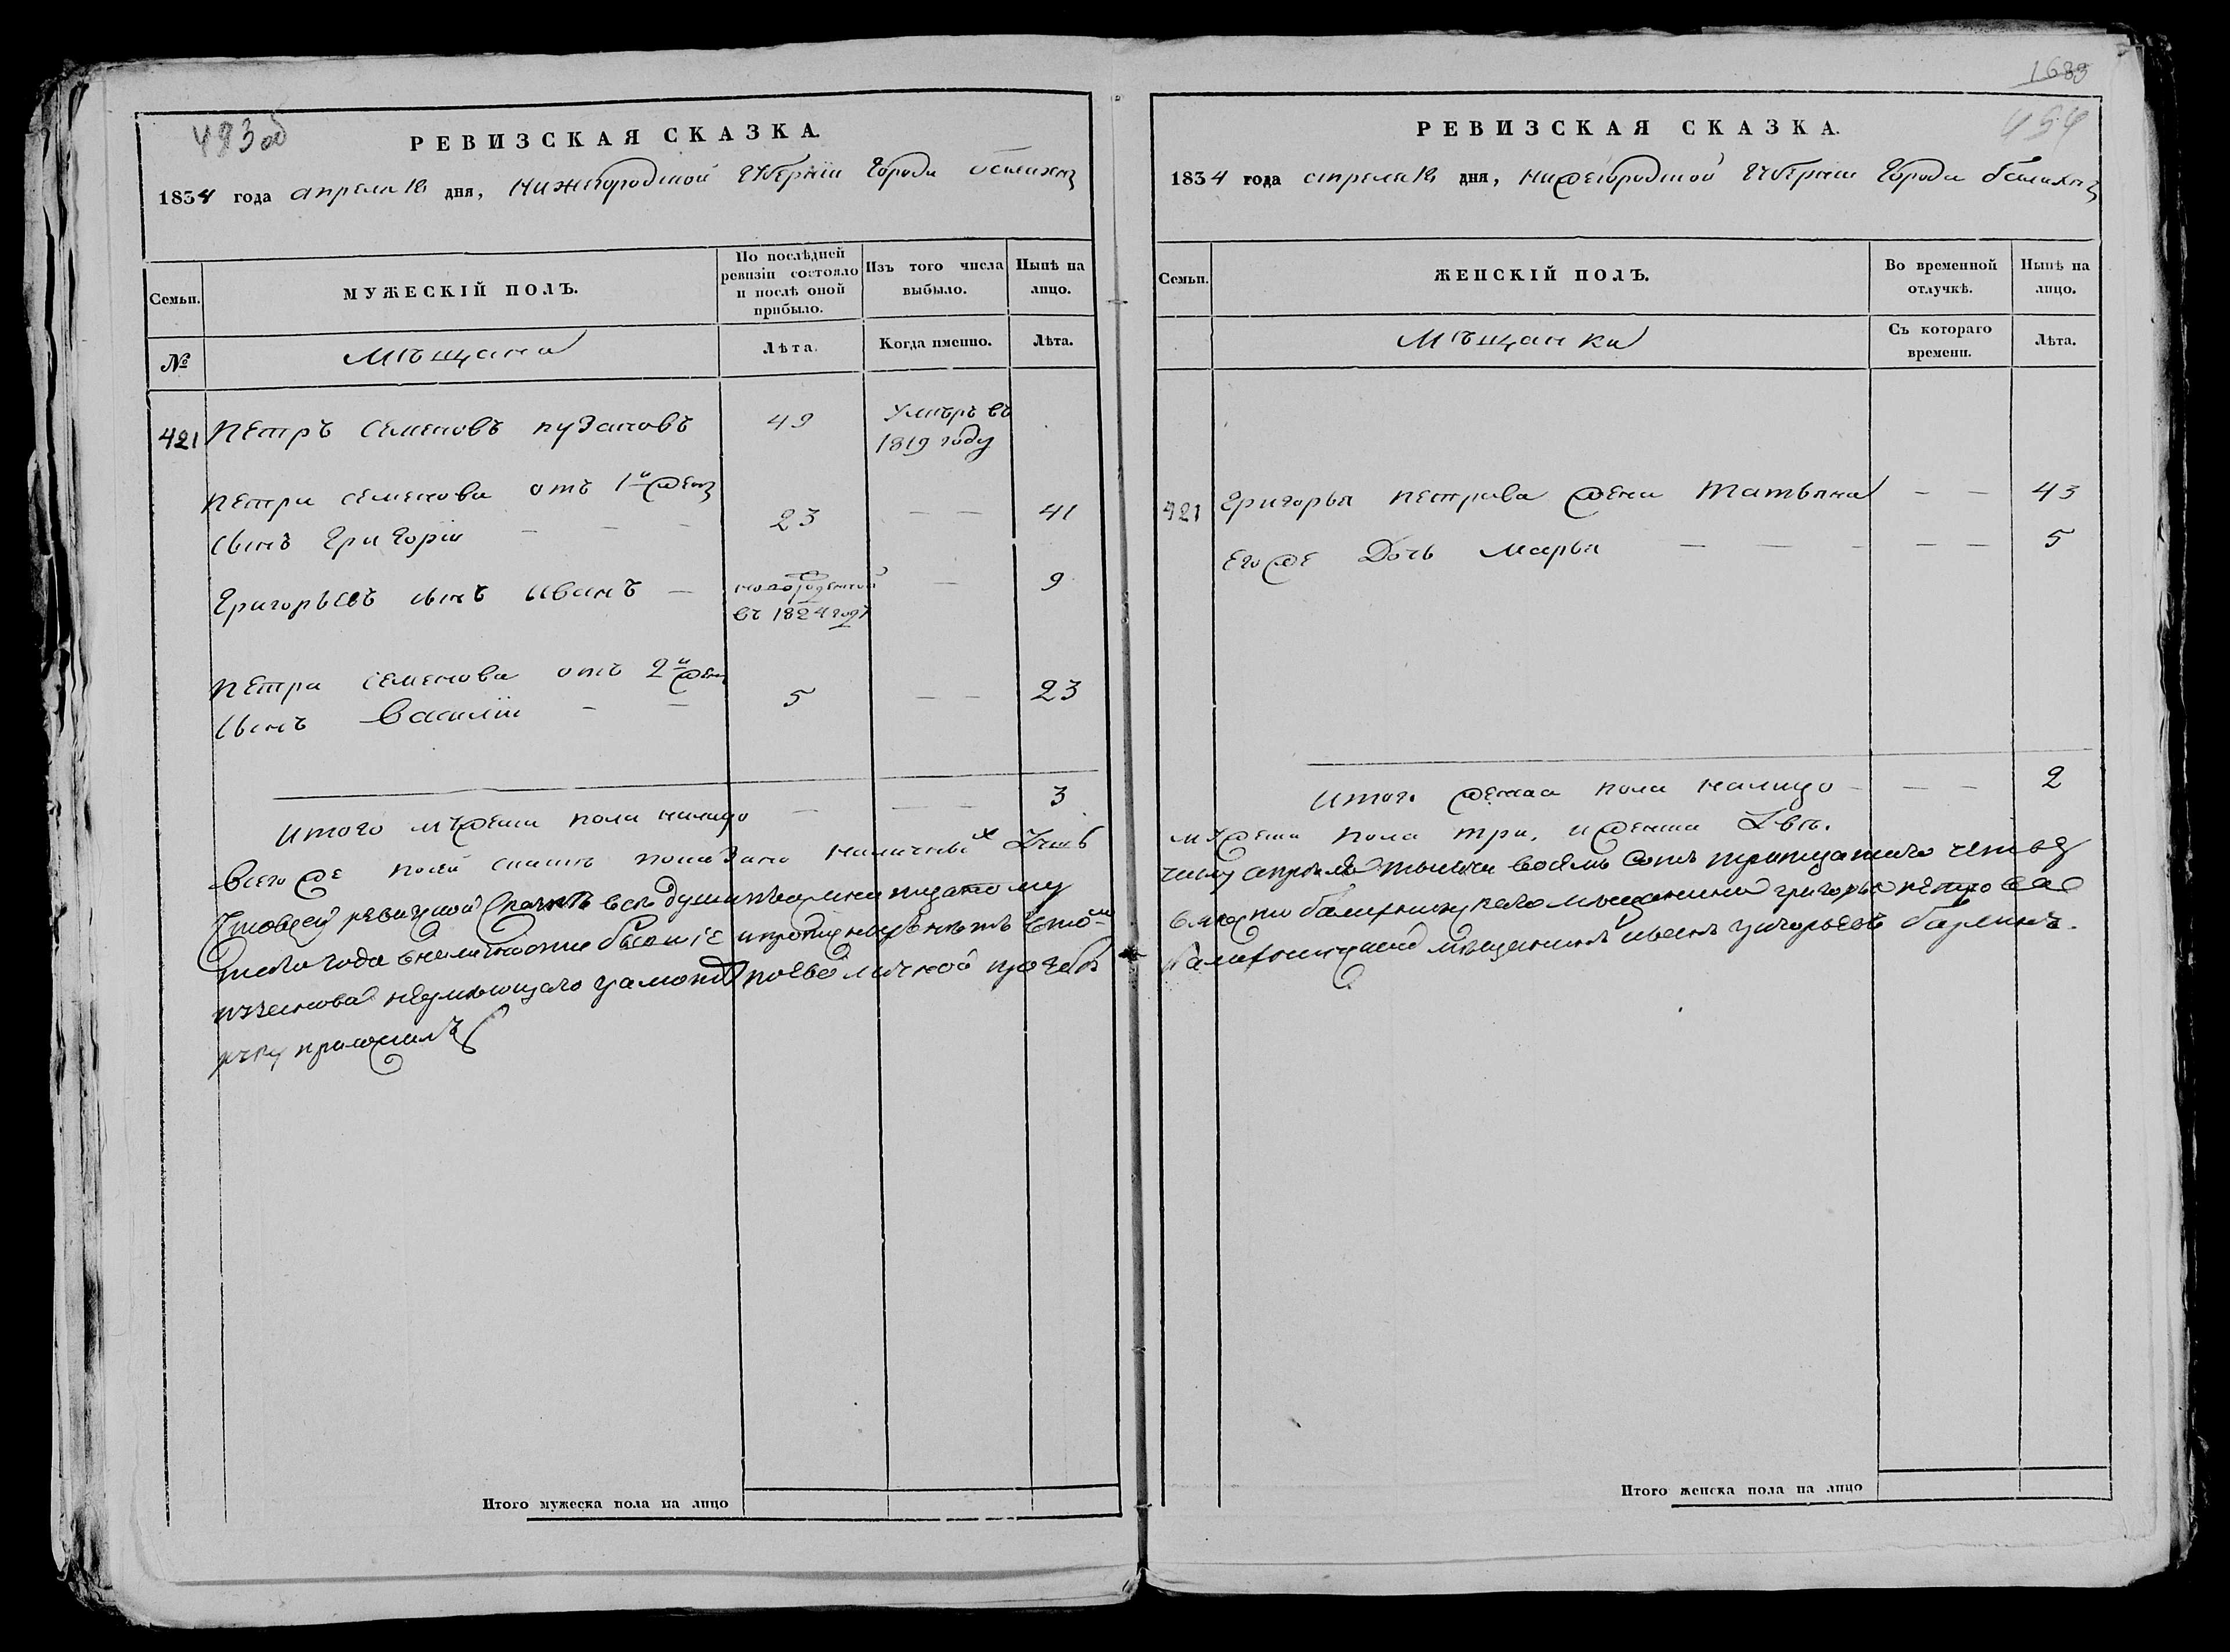 493об
РЕВИЗСКАЯ СКАЗКА.
1834 года апреля дня, Нижегородской Губернїи Города балахны
Семьи.
МУЖЕСКІЙ ПОЛЪ.
По послѣдней ревизіи состояло и послѣ оной прибыло.
Изъ того числа выбыло.
Нынѣ на лицо.
№
мѣщана
Лѣта.
Когда именно.
Лѣта.
421 Петръ Семеновъ пузановъ 49 Умѣръ въ
1819 году
Петра семенова отъ 1й жены
сынъ Григорій — — — 23 — — 41
Григорьевъ сынъ иванъ — новорожденной — 9
въ 1824 годѣ
Петра семенова отъ 2й жены
сынъ Василій — — 5 — — 23
Итого мужеска пола налицо — — — 3
Всего же по сей показано наличныхъ душъ
Что в сей ревизской все души
того года
пузанова неумеющаго грамоте по ево личной прозбе
руку приложилъ
Итого мужеска пола на лицо
1683
454
РЕВИЗСКАЯ СКАЗКА.
1834 года апреля дня, нижегородской Губернїи Города балахны
Семьи.
ЖЕНСКІЙ ПОЛЪ.
Во временной отлучкѣ.
Нынѣ на лицо.
мѣщанки
Съ котораго времени.
Лѣта.
421 Григорья петрова жена Татьяна — — 43
Его же Дочь марья — — — — — 5
Итого женска пола налицо — — — 2
мужеска пола три, и женска двѣ.
числу апреля тысяча восемь сотъ тритцатаго четвер
балахнинскаго мещанина григорья петрова
балахнинской мещанинъ иванъ григорьевъ
Итого женска пола на лицо